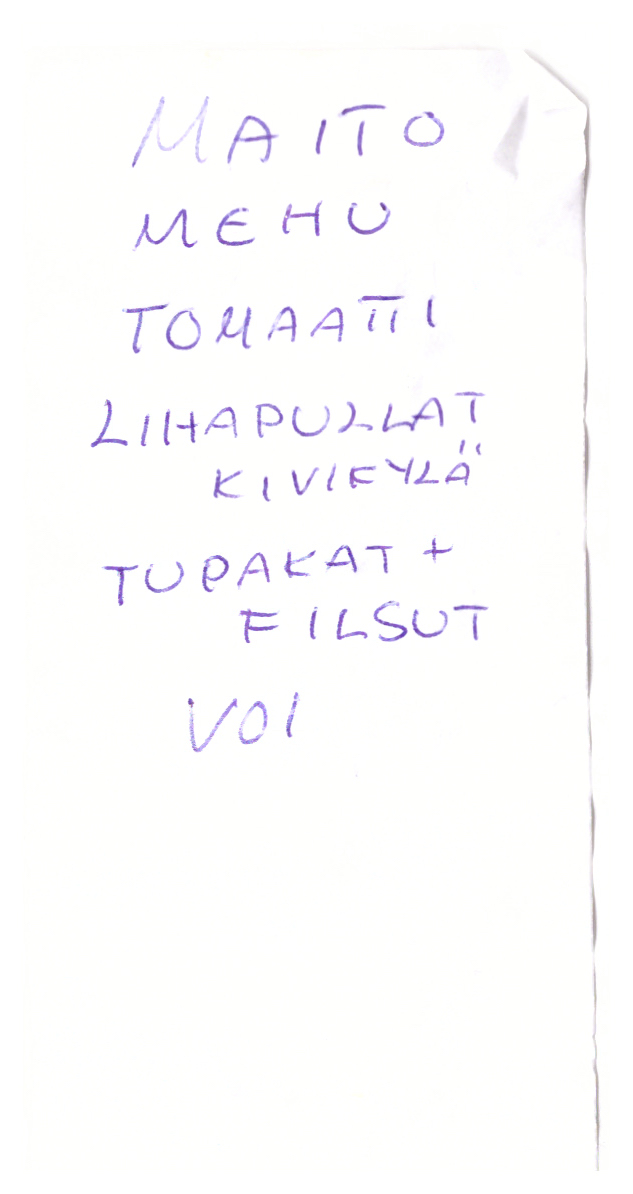 MAITO
MEHU
TOMAATTI
LIHAPULLAT
KIVIKYLÄ
TUPAKAT +
FILSUT
VOI